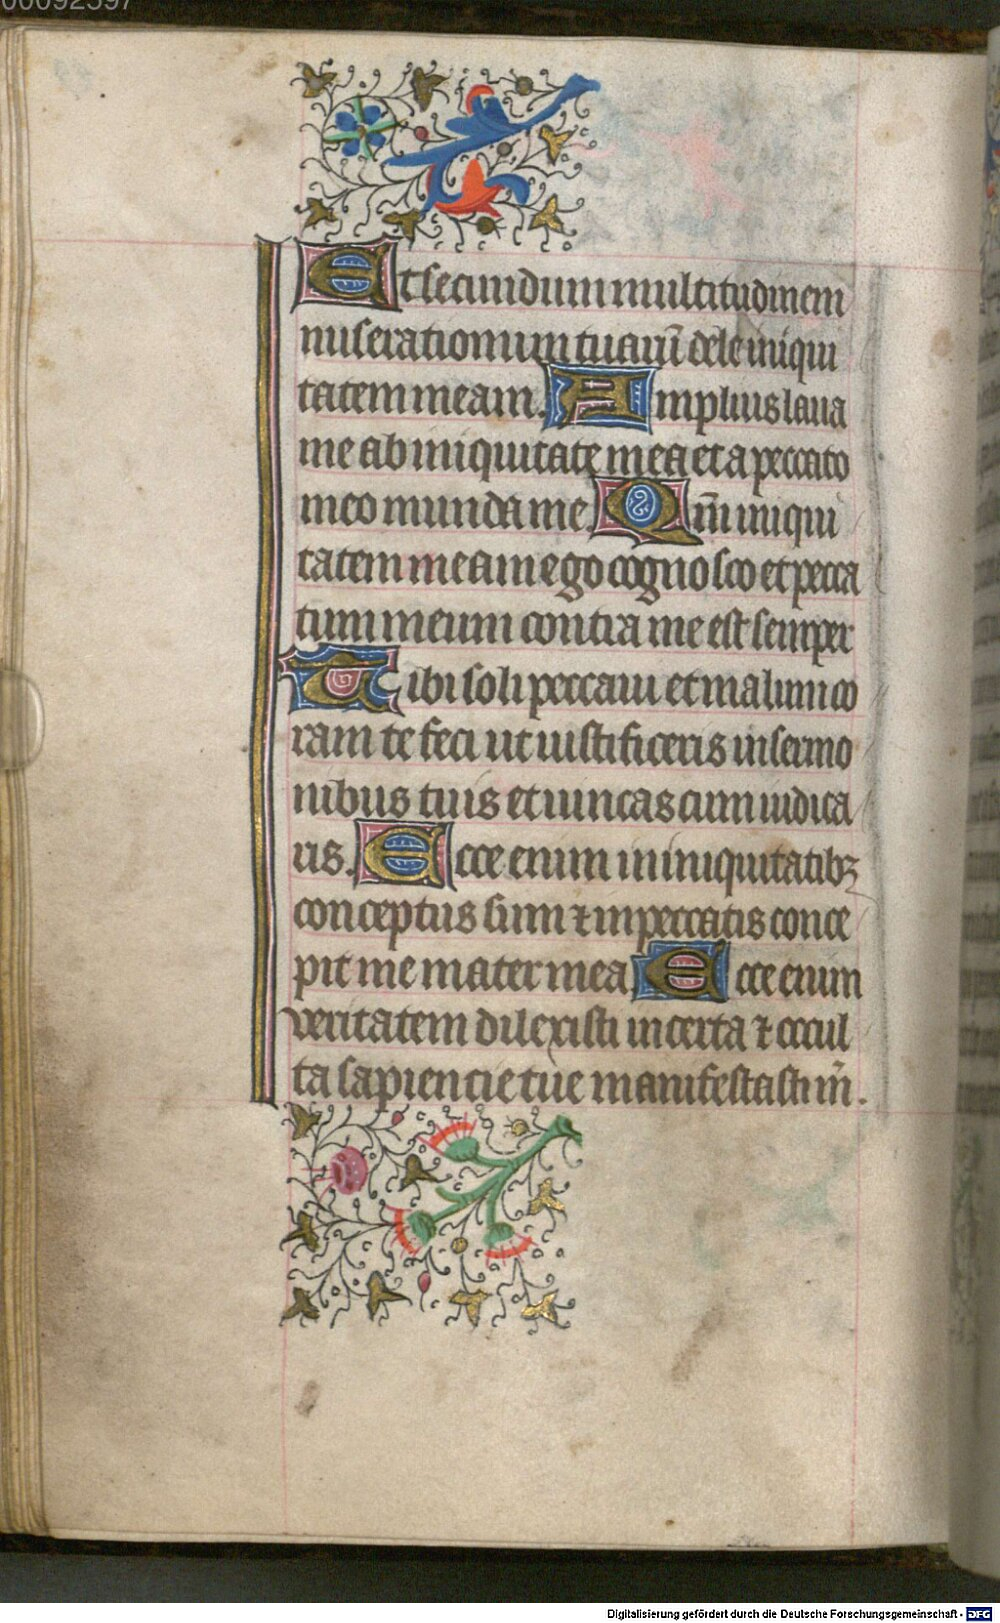 00092597
Et secundum multitudinem
miserationum tuaru̅ dele iniqui
tatem meam. Amplius laua
me ab iniquitate mea et a peccato
meo munda me. Qm̅ iniqui
tatem meam ego cognosco et pecca
tum meum contra me est semper
Tibi soli peccaui et malum co
ram te feci ut iustificeris in sermo
nibus tuis et uincas cum iudica
ris. Ecce enim in iniquitatibꝫ
conceptus sum ⁊ in peccatis conce
pit me mater mea. Ecce enim
veritatem dilexisti incerta ⁊ occul
ta sapiencie tue manifestasti m̅.
Digitalisierung gefördert durch die Deutsche Forschungsgemeinschaft - DFG